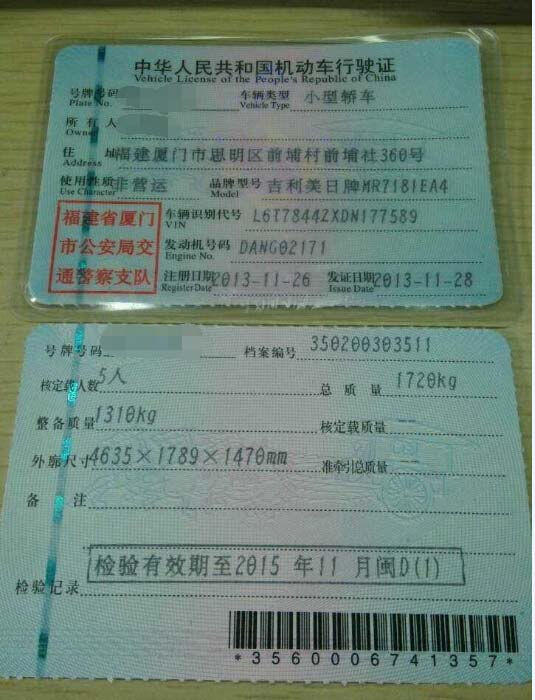 中华人民共和国机动车行驶证
Vehicle License of the People's Republic of China
号牌号码 车辆类型 小型轿车
Plate No. Vehicle Type
所有人
Owner
住址 福建厦门市思明区前埔村前埔社360号
Address
使用性质 非营运 品牌型号 吉利美日牌MR7181EA4
Use Character Model
福建省厦门
市公安局交
通警察支队
车辆识别代号 L6T7844ZXDN177589
VIN
发动机号码 DANG02171
Engine No.
注册日期 2013-11-26 发证日期 2013-11-28
Register Date Issue Date
号牌号码 档案编号 350200303511
核定载人数 5人 总质量 1720kg
整备质量 1310kg 核定载质量 --
外廓尺寸 4635×1789×1470mm 准牵引总质量 --
备注
检验有效期至2015 年11 月闽D(1)
检验记录
*3560006741357*